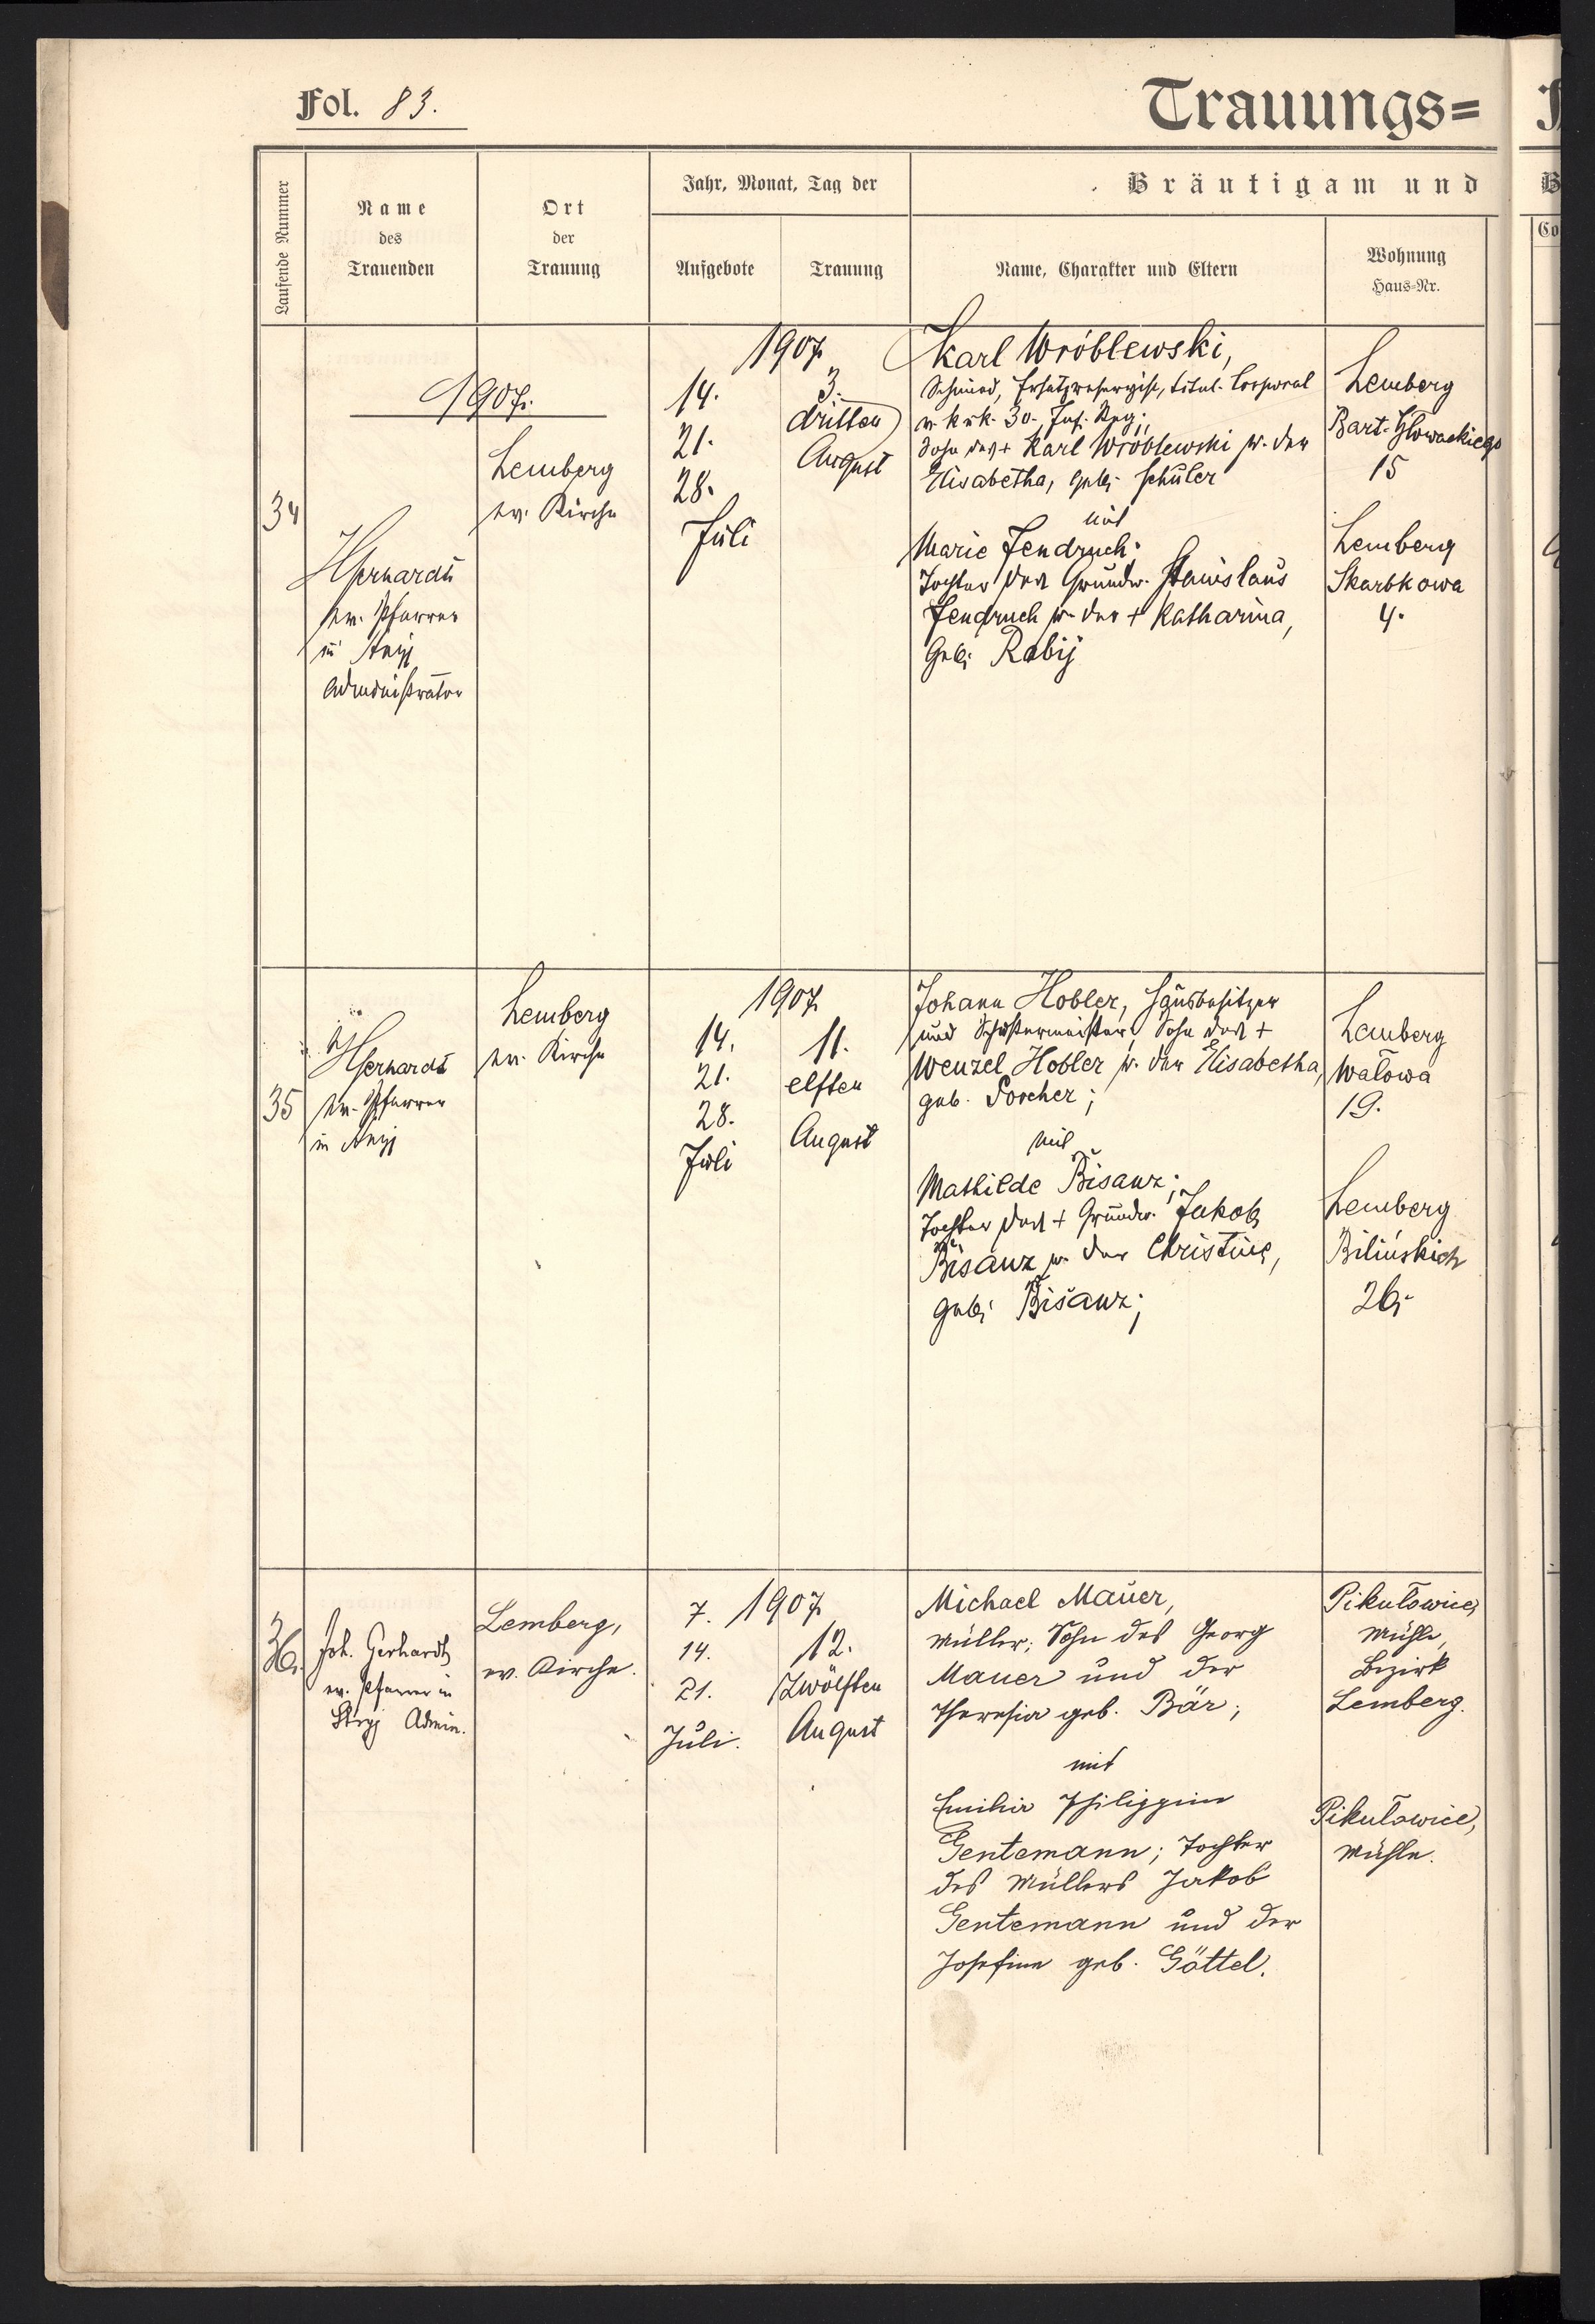 Fol. 83.
Trauungs=
Laufende Nummer
Name
des
Trauenden
Ort
der
Trauung
Jahr, Monat, Tag der
Aufgebote
Trauung
Bräutigam und
Name, Charakter und Eltern
Wohnung
Haus-Nr.
Co
34
1907.
Gerhardt
ev. Pfarrer
in Stryj
Administrator
Lemberg
ev. Kirche
1907
14.
21.
28.
Juli
3.
dritten
August
Karl Wróblewski,
Schmied, Ersatzreservist, titul. Corporal
k.u.k. 30. Inf. Reg.;
Sohn des + Karl Wróblewski u. der
Elisabetha, geb. Schüler
mit
Marie Jendruch;
Tochter des Grundw. Stanislaus
Jendruch u. der + Katharina,
geb. Rabij
Lemberg
Bart. Głowackiego
15
Lemberg
Skarbkowa
4.
35
Gerhardt
ev. Pfarrer
in Stryj
Lemberg
ev. Kirche
1907
14.
21.
28.
Juli
11.
elften
August
Johann Hobler, Hausbesitzer
und Schustermeister, Sohn des +
Wenzel Hobler u. der Elisabetha,
geb. Porcher;
mit
Mathilde Bisanz;
Tochter des + Grundw. Jakob
Bisanz u. der Christine,
geb. Bisanz;
Lemberg
Wałowa
19.
Lemberg
Bilińskich
26.
36.
Joh. Gerhardt
ev. Pfarrer in
Stryj Admin.
Lemberg,
ev. Kirche.
1907
7.
14.
21.
Juli.
12.
Zwölften
August
Michael Mauer,
Müller; Sohn des Georg
Mauer und der
Theresia geb. Bär;
mit
Emilie Philippine
Gentemann; Tochter
des Müllers Jakob
Gentemann und der
Josefine geb. Göttel.
Pikułowice,
Mühle,
Bezirk
Lemberg.
Pikułowice,
Mühle.